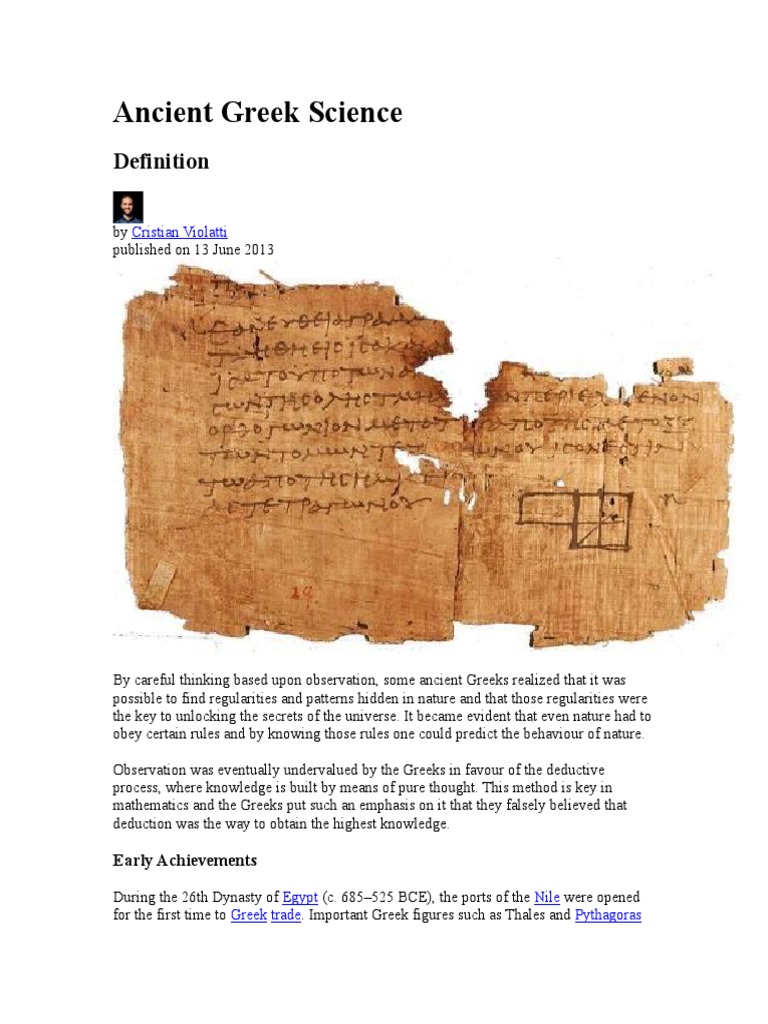 Ancient Greek Science
Definition
by Cristian Violatti
published on 13 June 2013
ΕΥΘΕΙΑ ΓΡΑΜ
ΤΜΗΘΗ ΕΙϹ ΙϹΑ ΚΑΙ
ΤΩΝ ΤΗϹ ΟΛΗϹ ΤΜΗ ΠΕΡΙΕΧΟΜΕΝΟΝ
ΟΡΘΟΓΩΝΙΟΝ ΜΕΤΑ ΤΟΥ ΑΠΟ ΤΗϹ ΜΕΤΟΞΥ
ΤΩΝ ΤΟΜΩΝ ΙϹΟΝ ΕϹΤΙΝ
ΑΠΟ ΤΗϹ ΗΜΙϹ
ΤΕΤΡΑΓΩΝΟΥ
By careful thinking based upon observation, some ancient Greeks realized that it was
possible to find regularities and patterns hidden in nature and that those regularities were
the key to unlocking the secrets of the universe. It became evident that even nature had to
obey certain rules and by knowing those rules one could predict the behaviour of nature.
Observation was eventually undervalued by the Greeks in favour of the deductive
process, where knowledge is built by means of pure thought. This method is key in
mathematics and the Greeks put such an emphasis on it that they falsely believed that
deduction was the way to obtain the highest knowledge.
Early Achievements
During the 26th Dynasty of Egypt (c. 685–525 BCE), the ports of the Nile were opened
for the first time to Greek trade. Important Greek figures such as Thales and Pythagoras